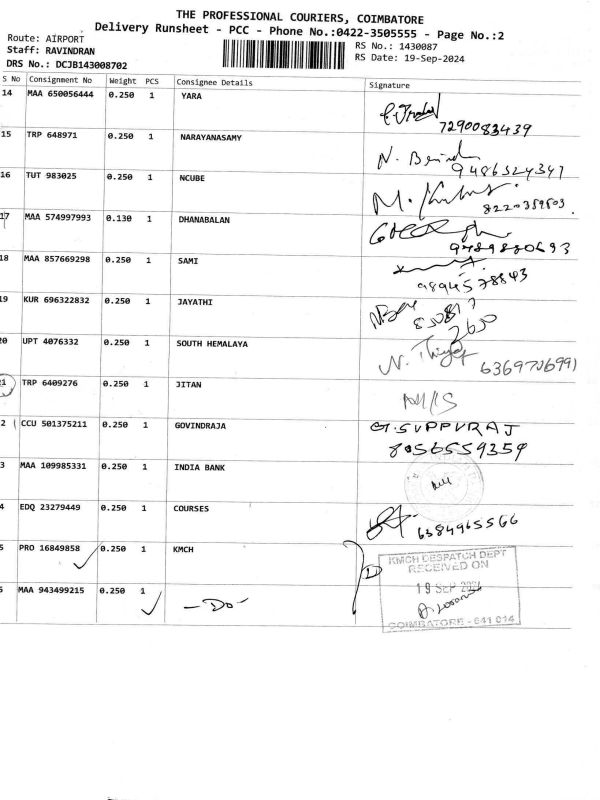 THE PROFESSIONAL COURIERS, COIMBATORE
Delivery Runsheet - PCC - Phone No.:0422-3505555 - Page No.:2
Route: AIRPORT
Staff: RAVINDRAN
DRS No.: DCJB143008702
RS No.: 1430087
RS Date: 19-Sep-2024
S No Consignment No Weight PCS Consignee Details Signature
14 MAA 650056444 0.250 1 YARA
7290083439
15 TRP 648971 0.250 1 NARAYANASAMY
9486324347
16 TUT 983025 0.250 1 NCUBE
8220359503
17 MAA 574997993 0.130 1 DHANABALAN
9489880693
18 MAA 857669298 0.250 1 SAMI
9894578843
19 KUR 696322832 0.250 1 JAYATHI
2650
20 UPT 4076332 0.250 1 SOUTH HEMALAYA
6369706991
21 TRP 6409276 0.250 1 JITAN
2 CCU 501375211 0.250 1 GOVINDRAJA
G.SUPPURAJ
8056559359
3 MAA 109985331 0.250 1 INDIA BANK
4 EDQ 23279449 0.250 1 COURSES
6384965566
5 PRO 16849858 0.250 1 KMCH
KMCH DESPATCH DEPT
RECEIVED ON
19 SEP 2024
COIMBATORE - 641 014
MAA 943499215 0.250 1 - Do -